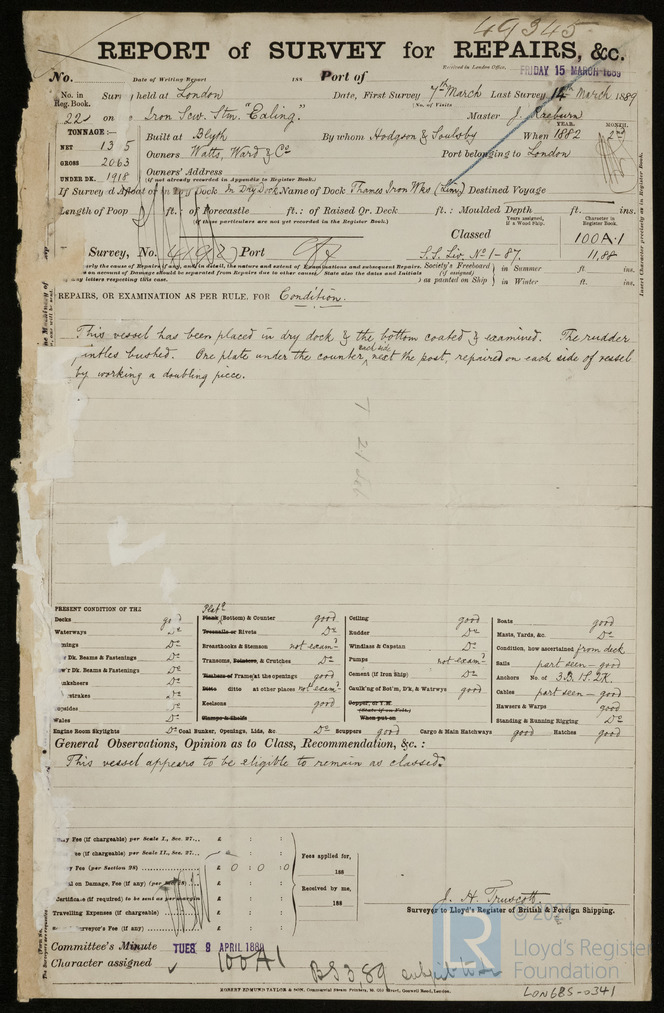 49345
REPORT of SURVEY for REPAIRS, &c.
Received in London Office, FRIDAY 15 MARCH 1889
No. Date of Writing Report 188 Port of
No. in Reg. Book. Sur held at London Date, First Survey 7th March Last Survey 14th March 1889
(No. of Visits
22 on Iron Scw. Stm. "Ealing." Master J. Raeburn
TONNAGE:— Built at Blyth By whom Hodgson & Soulsby When 1882 YEAR. MONTH.
NET 13 5
GROSS 2063 Owners Watts, Ward & Co Port belonging to London
UNDER DK. 1918 Owners' Address
(if not already recorded in Appendix to Register Book.)
If Surveyed Afloat or in Dry Dock In Dry Dock Name of Dock Thames Iron Wks (Lim) Destined Voyage
Length of Poop ft.: of Forecastle ft.: of Raised Qr. Deck ft.: Moulded Depth ft. ins.
(if these particulars are not yet recorded in the Register Book.)
Years assigned, if a Wood Ship. Character in Register Book.
Classed 100A·1
Survey, No. Port S.S. Liv. No 1-87. 11,88
Society's Freeboard (if assigned) as painted on Ship in Summer ft ins.
in Winter ft. ins.
Insert Character precisely as in Register Book.
REPAIRS, OR EXAMINATION AS PER RULE, FOR Condition.
This vessel has been placed in dry dock & the bottom coated & examined. The rudder
intles bushed. One plate under the counter, each side next the post, repaired on each side of vessel
by working a doubling piece.
PRESENT CONDITION OF THE
Decks good
Waterways Do
mings Do
r Dk. Beams & Fastenings Do
Dk. Beams & Fastenings Do
nksheers Do
trakes Do
opsides Do
Wales Do
Engine Room Skylights Do
Plank (Bottom) & Counter good
Treenails or Rivets Do
Breasthooks & Stemson not examd
Transoms, Pointers, & Crutches Do
Timbers or Frames at the openings good
Ditto ditto at other places not examd
Keelsons good
Clamps & Shelfs
Coal Bunker, Openings, Lids, &c. Do
Ceiling good
Rudder Do
Windlass & Capstan Do
Pumps not examd
Cement (if Iron Ship) Do
Caulk'ng of Bot'm, D'k, & Watrwys good
Copper, or Y.M.
(State if on Felt.)
When put on
Scuppers good Cargo & Main Hatchways good Hatches good
Boats good
Masts, Yards, &c. Do
Condition, how ascertained from deck
Sails part seen — good
Anchors No. of 3.B. 1S. 2K.
Cables part seen — good
Hawsers & Warps good
Standing & Running Rigging Do
General Observations, Opinion as to Class, Recommendation, &c. :
This vessel appears to be eligible to remain as classed.
y Fee (if chargeable) per Scale I., Sec. 27... £ : :
ee (if chargeable) per Scale II., Sec. 27... £ : :
y Fee (per Section 28) £ 0 : 0 : 0
on Damage, Fee (if any) £ : :
Certificate (if required) to be sent as per margin
Travelling Expenses (if chargeable) £ : :
urveyor's Fee (if any) £ : :
Fees applied for, 188
Received by me, 188
J. H. Truscott.
Surveyor to Lloyd's Register of British & Foreign Shipping.
Committee's Minute TUES 9 APRIL 1889
Character assigned 100A1
BS 3,89
ROBERT EDMUND TAYLOR & SON, Commercial Steam Printers, 19, Old Street, Goswell Road, London.
LR
Lloyd's Register
Foundation
LON685-0341